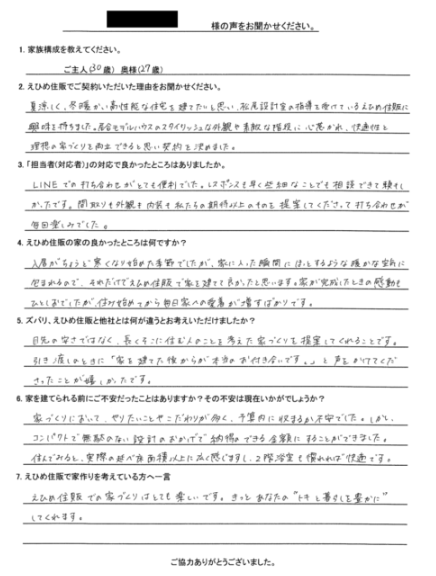 様の声をお聞かせください。
1. 家族構成を教えてください。
ご主人(30歳) 奥様(27歳)
2. えひめ住販でご契約いただいた理由をお聞かせください。
夏涼しく、冬暖かい高性能な住宅を建てたいと思い、松尾設計室の指導を受けているえひめ住販に
興味を持ちました。居合せでレハウスのスタイリッシュな外観や素敵な階段に心惹かれ、快適性と
理想の家づくりを両立できると思い契約を決めました。
3. 「担当者(対応者)」の対応で良かったところはありましたか。
LINEでの打ち合わせがとても便利でした。レスポンスも早く些細なことでも相談できて頼もし
かったです。間取りも外観も内装も私たちの期待以上のものを提案してくださって打ち合わせが
毎日楽しみでした。
4. えひめ住販の家の良かったところは何ですか？
入居がちょうど寒くなり始めた季節でしたが、家に入った瞬間にほっとするような暖かな空気に
包まれるので、それだけでえひめ住販で家を建てて良かったと思います。家が完成したときの感動も
ひとしおでしたが、住み始めてから毎日家への愛着が増すばかりです。
5. ズバリ、えひめ住販と他社とは何が違うとお考えいただけましたか？
目先の安さではなく、長くそこに住む人のことを考えた家づくりを提案してくれることです。
引き渡しのときに「家を建てた後からが本当のお付き合いです。」と声をかけてくだ
さったことが嬉しかったです。
6. 家を建てられる前にご不安だったことはありますか？その不安は現在いかがでしょうか？
家づくりにおいて、やりたいことやこだわりが多く、予算内に収まるか不安でした。しかし、
コンパクトで無駄のない設計のおかげで納得のできる金額にすることができました。
住んでみると、実際の延べ床面積以上に広く感じますし、2階浴室も慣れれば快適です。
7. えひめ住販で家作りを考えている方へ一言
えひめ住販での家づくりはとても楽しいです。きっとあなたの"トキ"と暮らしを豊かに
してくれます。
ご協力ありがとうございました。